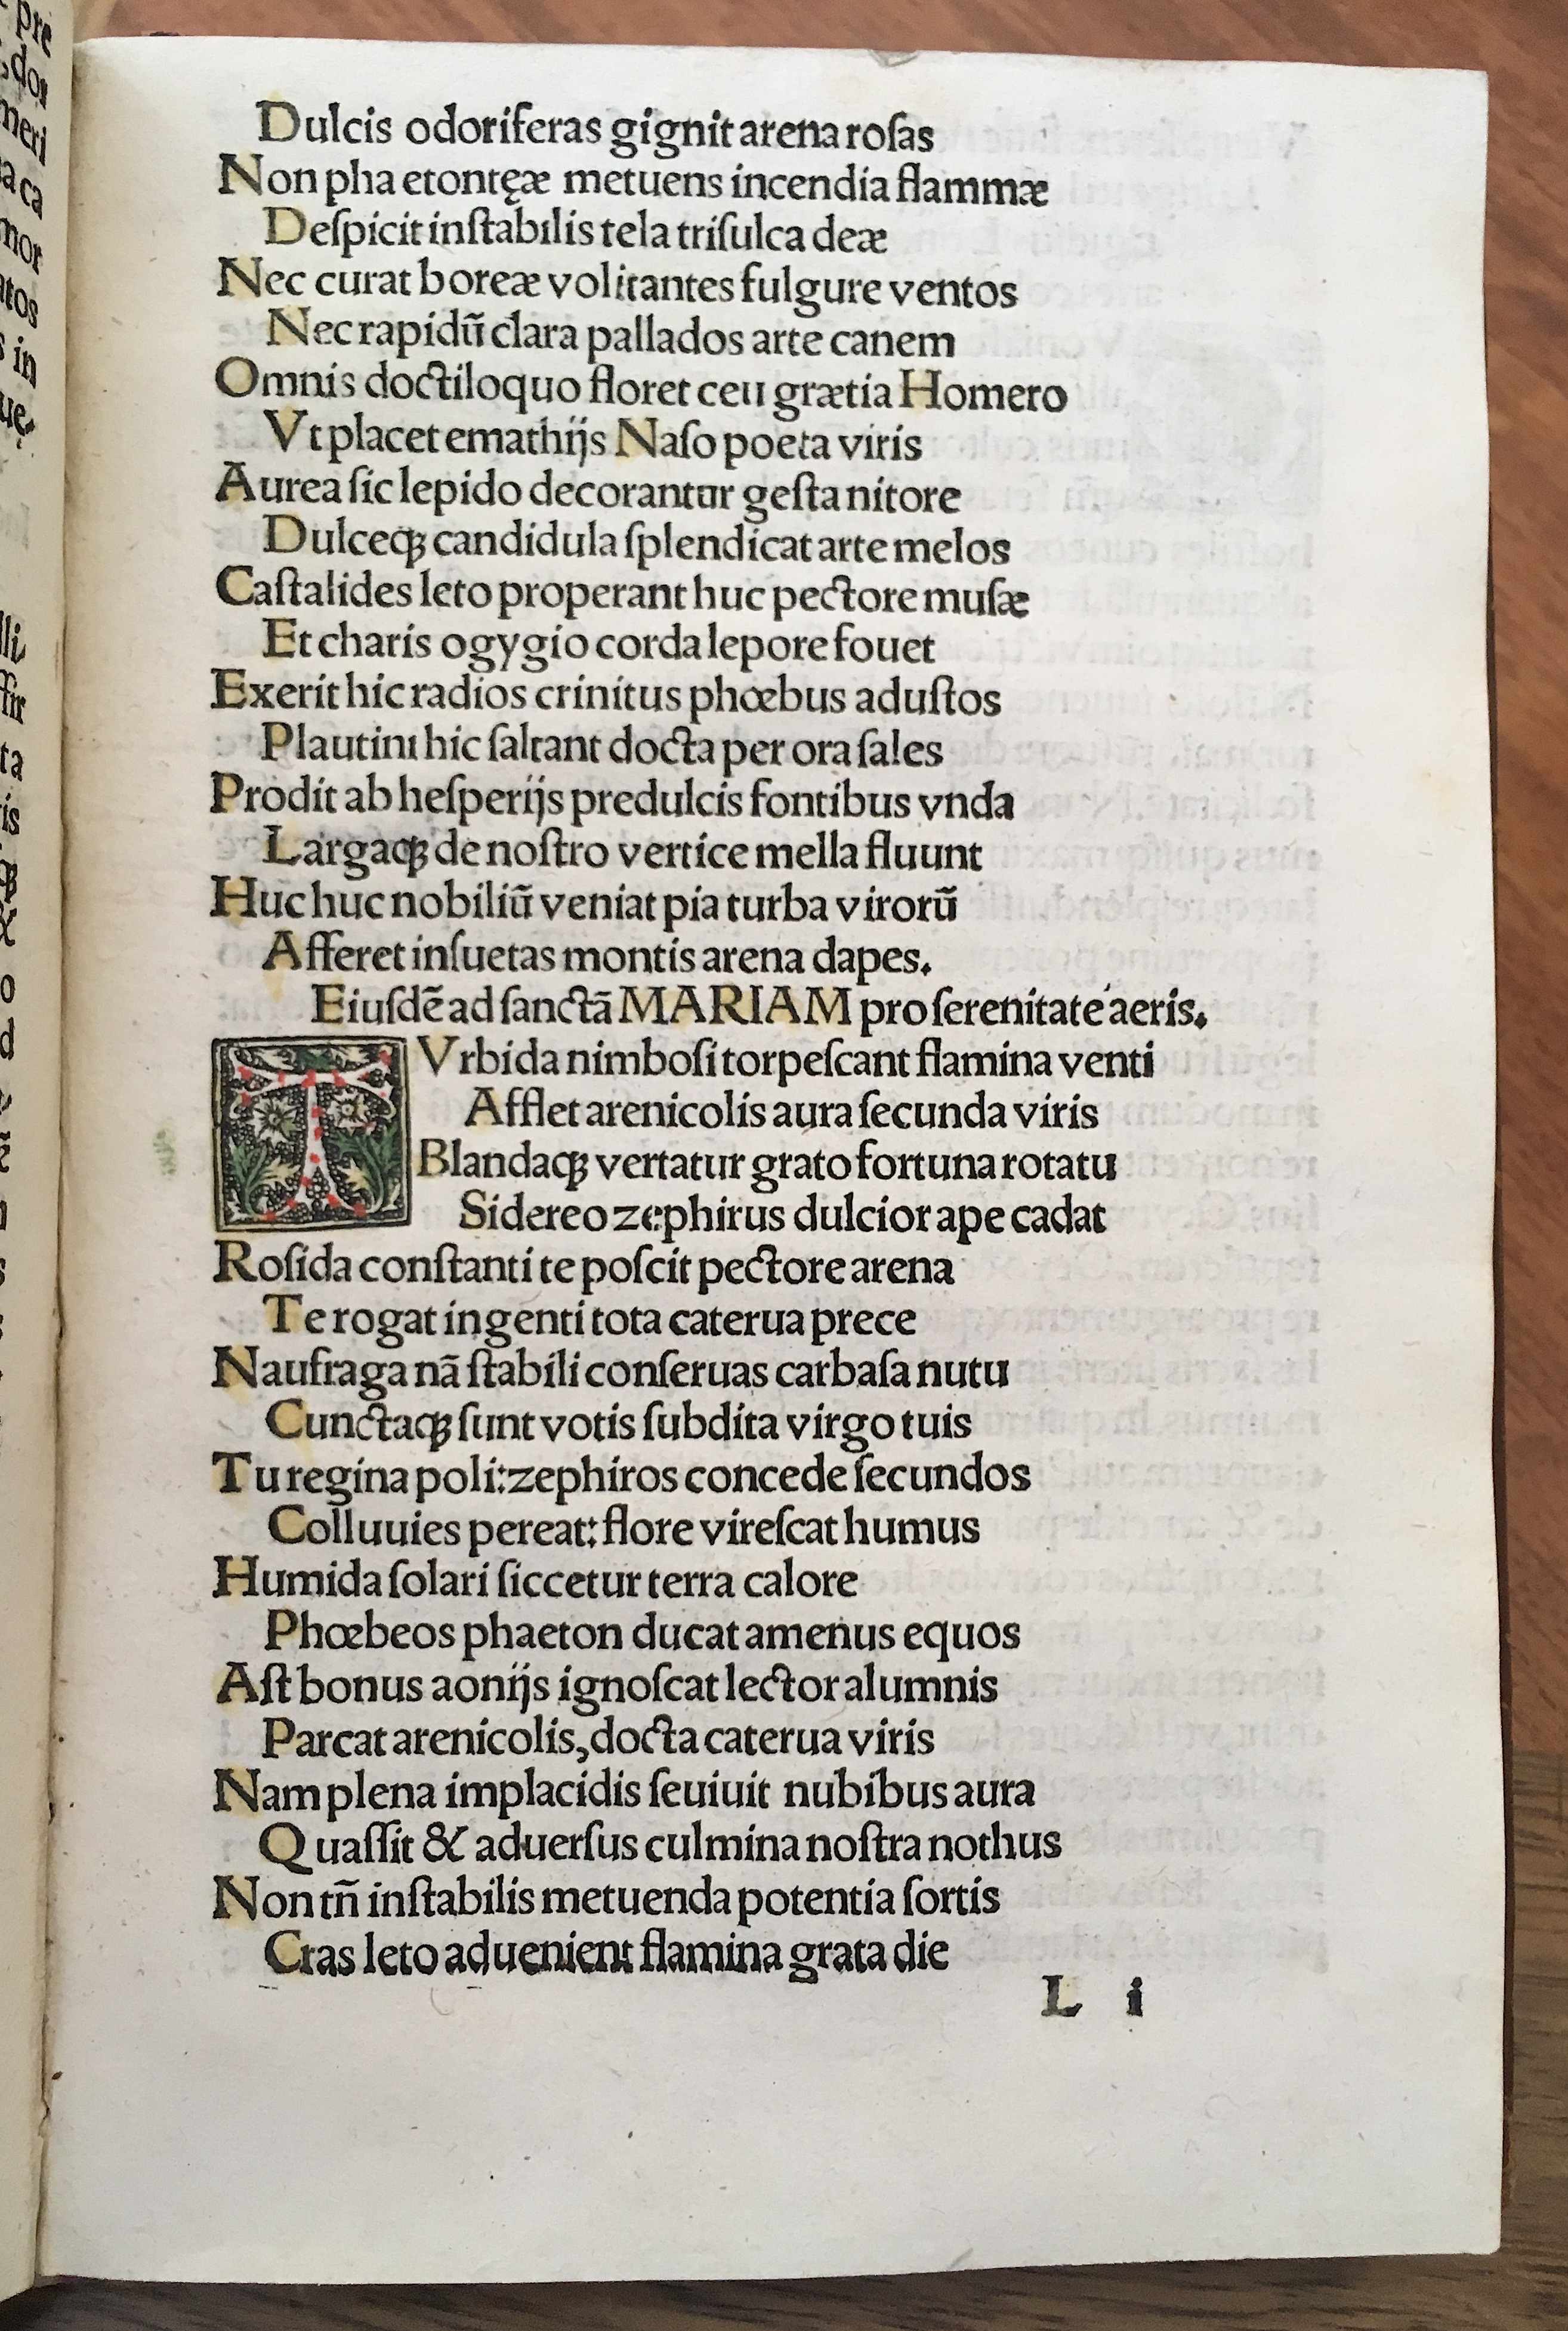 Dulcis odoriferas gignit arena roſas
Non pha etontęæ metuens incendia flammæ
Deſpicit inſtabilis tela triſulca deæ
Nec curat boreæ volitantes fulgure ventos
Nec rapidū clara pallados arte canem
Omnis doctiloquo floret ceu grætia Homero
Vt placet emathijs Naſo poeta viris
Aurea ſic lepido decorantur geſta nitore
Dulceqꝫ candidula ſplendicat arte melos
Caſtalides leto properant huc pectore muſæ
Et charis ogygio corda lepore fouet
Exerit hic radios crinitus phœbus aduſtos
Plautini hic ſaltant docta per ora ſales
Prodit ab heſperijs predulcis fontibus vnda
Largaqꝫ de noſtro vertice mella fluunt
Huc huc nobiliū veniat pia turba virorū
Afferet inſuetas montis arena dapes.
Eiuſdē ad ſanctā MARIAM pro ſerenitate aeris.
TVrbida nimboſi torpeſcant flamina venti
Afflet arenicolis aura ſecunda viris
Blandaqꝫ vertatur grato fortuna rotatu
Sidereo zephirus dulcior ape cadat
Roſida conſtanti te poſcit pectore arena
Te rogat ingenti tota caterua prece
Naufraga nā ſtabili conſeruas carbaſa nutu
Cunctaqꝫ ſunt votis ſubdita virgo tuis
Tu regina poli:zephiros concede ſecundos
Colluuies pereat: flore vireſcat humus
Humida ſolari ſiccetur terra calore
Phœbeos phaeton ducat amenus equos
Aſt bonus aonijs ignoſcat lector alumnis
Parcat arenicolis, docta caterua viris
Nam plena implacidis ſeuiuit nubibus aura
Quaſſit & aduerſus culmina noſtra nothus
Non tn̄ inſtabilis metuenda potentia ſortis
Cras leto aduenient flamina grata die
L i